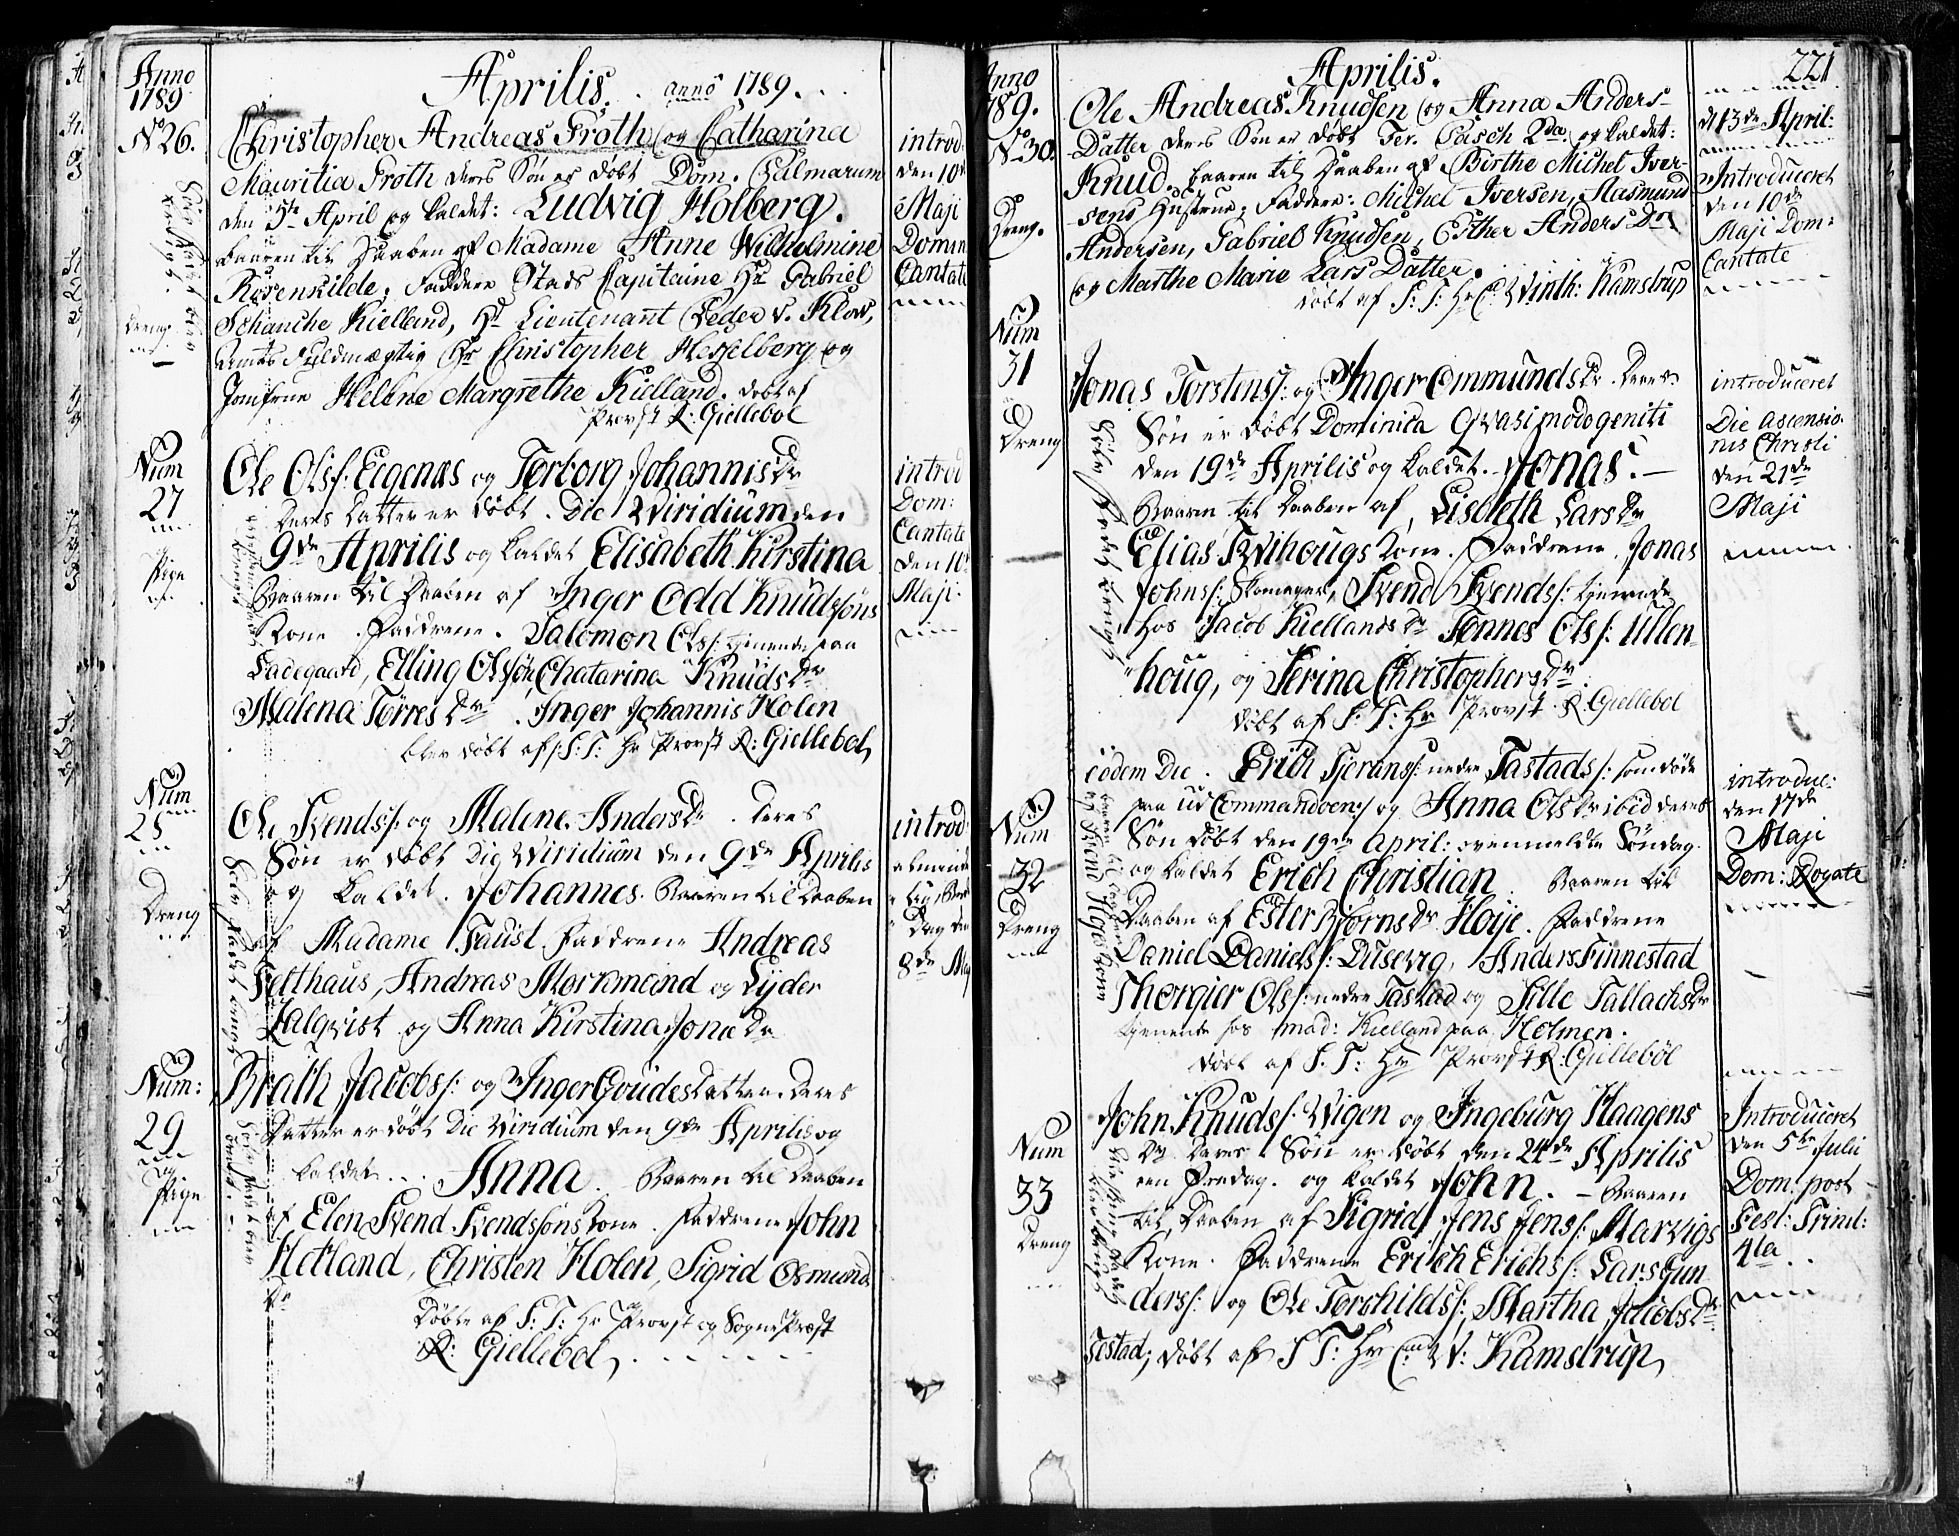 Anno
1789
Aprilis. anno 1789.
No 26.
Christopher Andreas Froth og Catharina
Mauritia Froth deres Søn er döbt Dom. Palmarum
den 5te April og kaldet: Ludvig Holberg.
baaren til Daaben af Madame Anne Wilhelmine
Rosenkilde. Faddere Stads Capitaine Hr Gabriel
Schanche Kielland, Hr Lieutenant Peder v. Klow,
Christopher Hesselberg og
Jomfrue Helene Margrethe Kielland. döbt af
Provst R: Giellebøl
Dreng
introd:
den 10de
Maji
Domin
Cantate
Num
27
Pige
Ole Olss: Eigenæs og Torborg Johannis Dr
Deres Datter er döbt. Die Viridium den
9de Aprilis og kaldet Elisabeth Kirstina
Baaren til Daaben af Inger Odd Knudssöns
Kone. Faddrene. Salomon Olss: tienende paa
Ladegaard, Elling Olssön, Chatarina Knuds Dr
Malena Törres Dr. Inger Johannis Holen
blev döbt af S: T: Hr Provst R: Giellebol
introd
Dom:
Cantate
den 10de
Maji.
Num
28
Dreng
Ole Svendss: og Malene Anders Dr. Deres
Søn er döbt Die Viridium den 9de Aprilis
og kaldet. Johannes. Baaren til Daaben
af Madame Faust. Faddrene Andreas
Felthaus, Andreas Morkmand og Lyder
Zalqvist og Anna Kirstina Jone Dr
introd:
Dag den
8de Maj
Num:
29
Pige
Brath Jacobs: og Inger Goudes Datter. Deres
Datter er döbt Die Viridium den 9de Aprilis og
kaldet... Anna. Baaren til Daaben
af Elen Svend Svendssöns Kone. Faddrene John
Hetland, Christen Holen, Sigrid Osmund
Dr
Döbte af S: T: Hr Provst og Sogne Præst
R: Giellebol
Anno
789.
Aprilis.
221
No 30.
Dreng.
Ole Andreas Knudsen og Anna Anders-
Datter deres Søn er döbt Fer. Pasch 2da og kaldet:
Knud. baaren til Daaben af Birthe Michel Iver-
sens Hustrue; Faddere: Michel Iversen, Rasmund
Andersen, Gabriel Knudsen, Esther Anders Dr
og Marthe Marie Lars Datter.
döbt af S: T: Hr C: Winth: Kamstrup
d 13de April:
Introduceret
den 10de
Maji Dom:
Cantate
Num
31
Dreng
Jonas Torstens: og Inger Ommunds Dr Deres
Søn er döbt Dominica Qvasimodogeniti
den 19de Aprilis og kaldet. Jonas.
Baaren til Daaben af Lisbeth Lars Dr
Elias Kone. Faddrene. Jonas
Johns: Skomager, Svend Svends: tienende
hos Jacob Kiellands Dr Tønnes Olss: Ullen-
houg, og Serina Christophers Dr.
döbt af S: T: Hr Provst R: Giellebol
introduceret
Die ascensio-
nis Christi
den 21de
Maji
Num
32
Dreng
eodem Die. Erich Tjerans: nedre Tastads: som döde
paa Ud Commandoen: og Anna Ols Dr ibid deres
Søn döbt den 19de April: ovenmeldte Söndag.
og kaldet Erich Christian. Baaren til
Daaben af Ester Biörns Dr Höije. Faddrene
Daniel Daniels: Dusevig, Anders Finnestad
Thorgier Olss: nedre Tastad og Sille Tallachs Dr
tienende hos mad: Kielland paa Holmen.
döbt af S. T: Hr Provst R: Giellebøl
introduc:
den 17de
Maji
Dom: Rogate
Num
33
Dreng
John Knuds: Vigen og Ingeburg Haagens
Dr Deres Søn er döbt den 24de Aprilis
en Fredag. og kaldet John. – Baaren
til Daaben af Sigrid Jens Jens: Marvigs
Kone. Faddrene Erich Erichs: Lars Gun
ders: og Ole Torchilds:, Martha Jacobs Dr
Tastad, döbt af S T: Hr C. W: Kamstrup
Introduceret
den 5te Julii
Dom: post
Fest: Trinit:
4ta